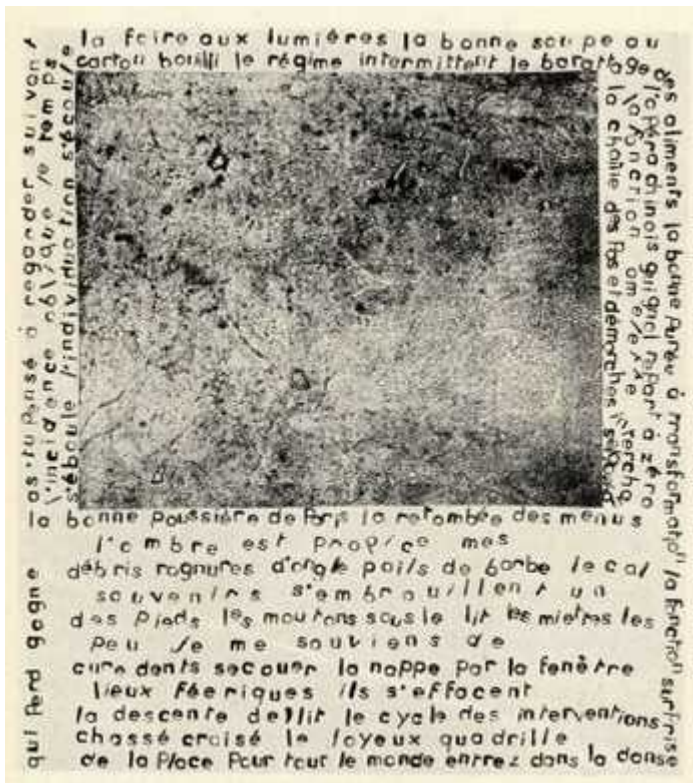 la foire aux lumières la bonne soupe au
carton bouilli le régime intermittent le barattage
des aliments la bonne purée à transformation la fonction surprise
l'opéra chinois guignol repart à zéro
la fonction amorcée
la chaîne des pas et démarches
as-tu pensé à regarder suivant
l'incidence oblique le temps
s'éboule l'individuation s'écoule
la bonne poussière de Paris la retombée des menus
l'ombre est propice mes
débris rognures d'ongle poils de barbe le cal
souvenirs s'embrouillent un
des pieds les moutons sous le lit les miettes les
peu je me souviens de
cure dents secouer la nappe par la fenêtre
lieux féeriques ils s'effacent
la descente de lit le cycle des interventions
chassé croisé le joyeux quadrille
de la place pour tout le monde entrez dans la danse
qui perd gagne